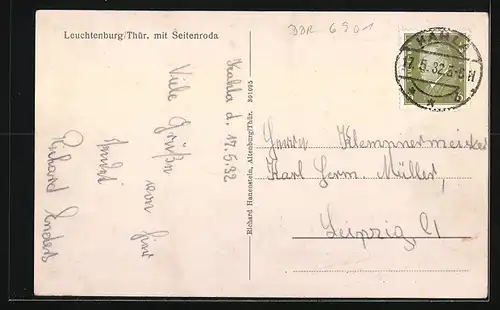 Leuchtenburg/Thür. mit Seitenroda
Kahla d. 17.5.32
Viele Grüße von hier
sendet
Richard Enders
Richard Hanenstein, Altenburg/Thür. 301095
DDR 6901
KAHLA
17.5.32.5-6N
* * b
Herrn Klempnermeister
Karl Herm. Müller,
Leipzig C1